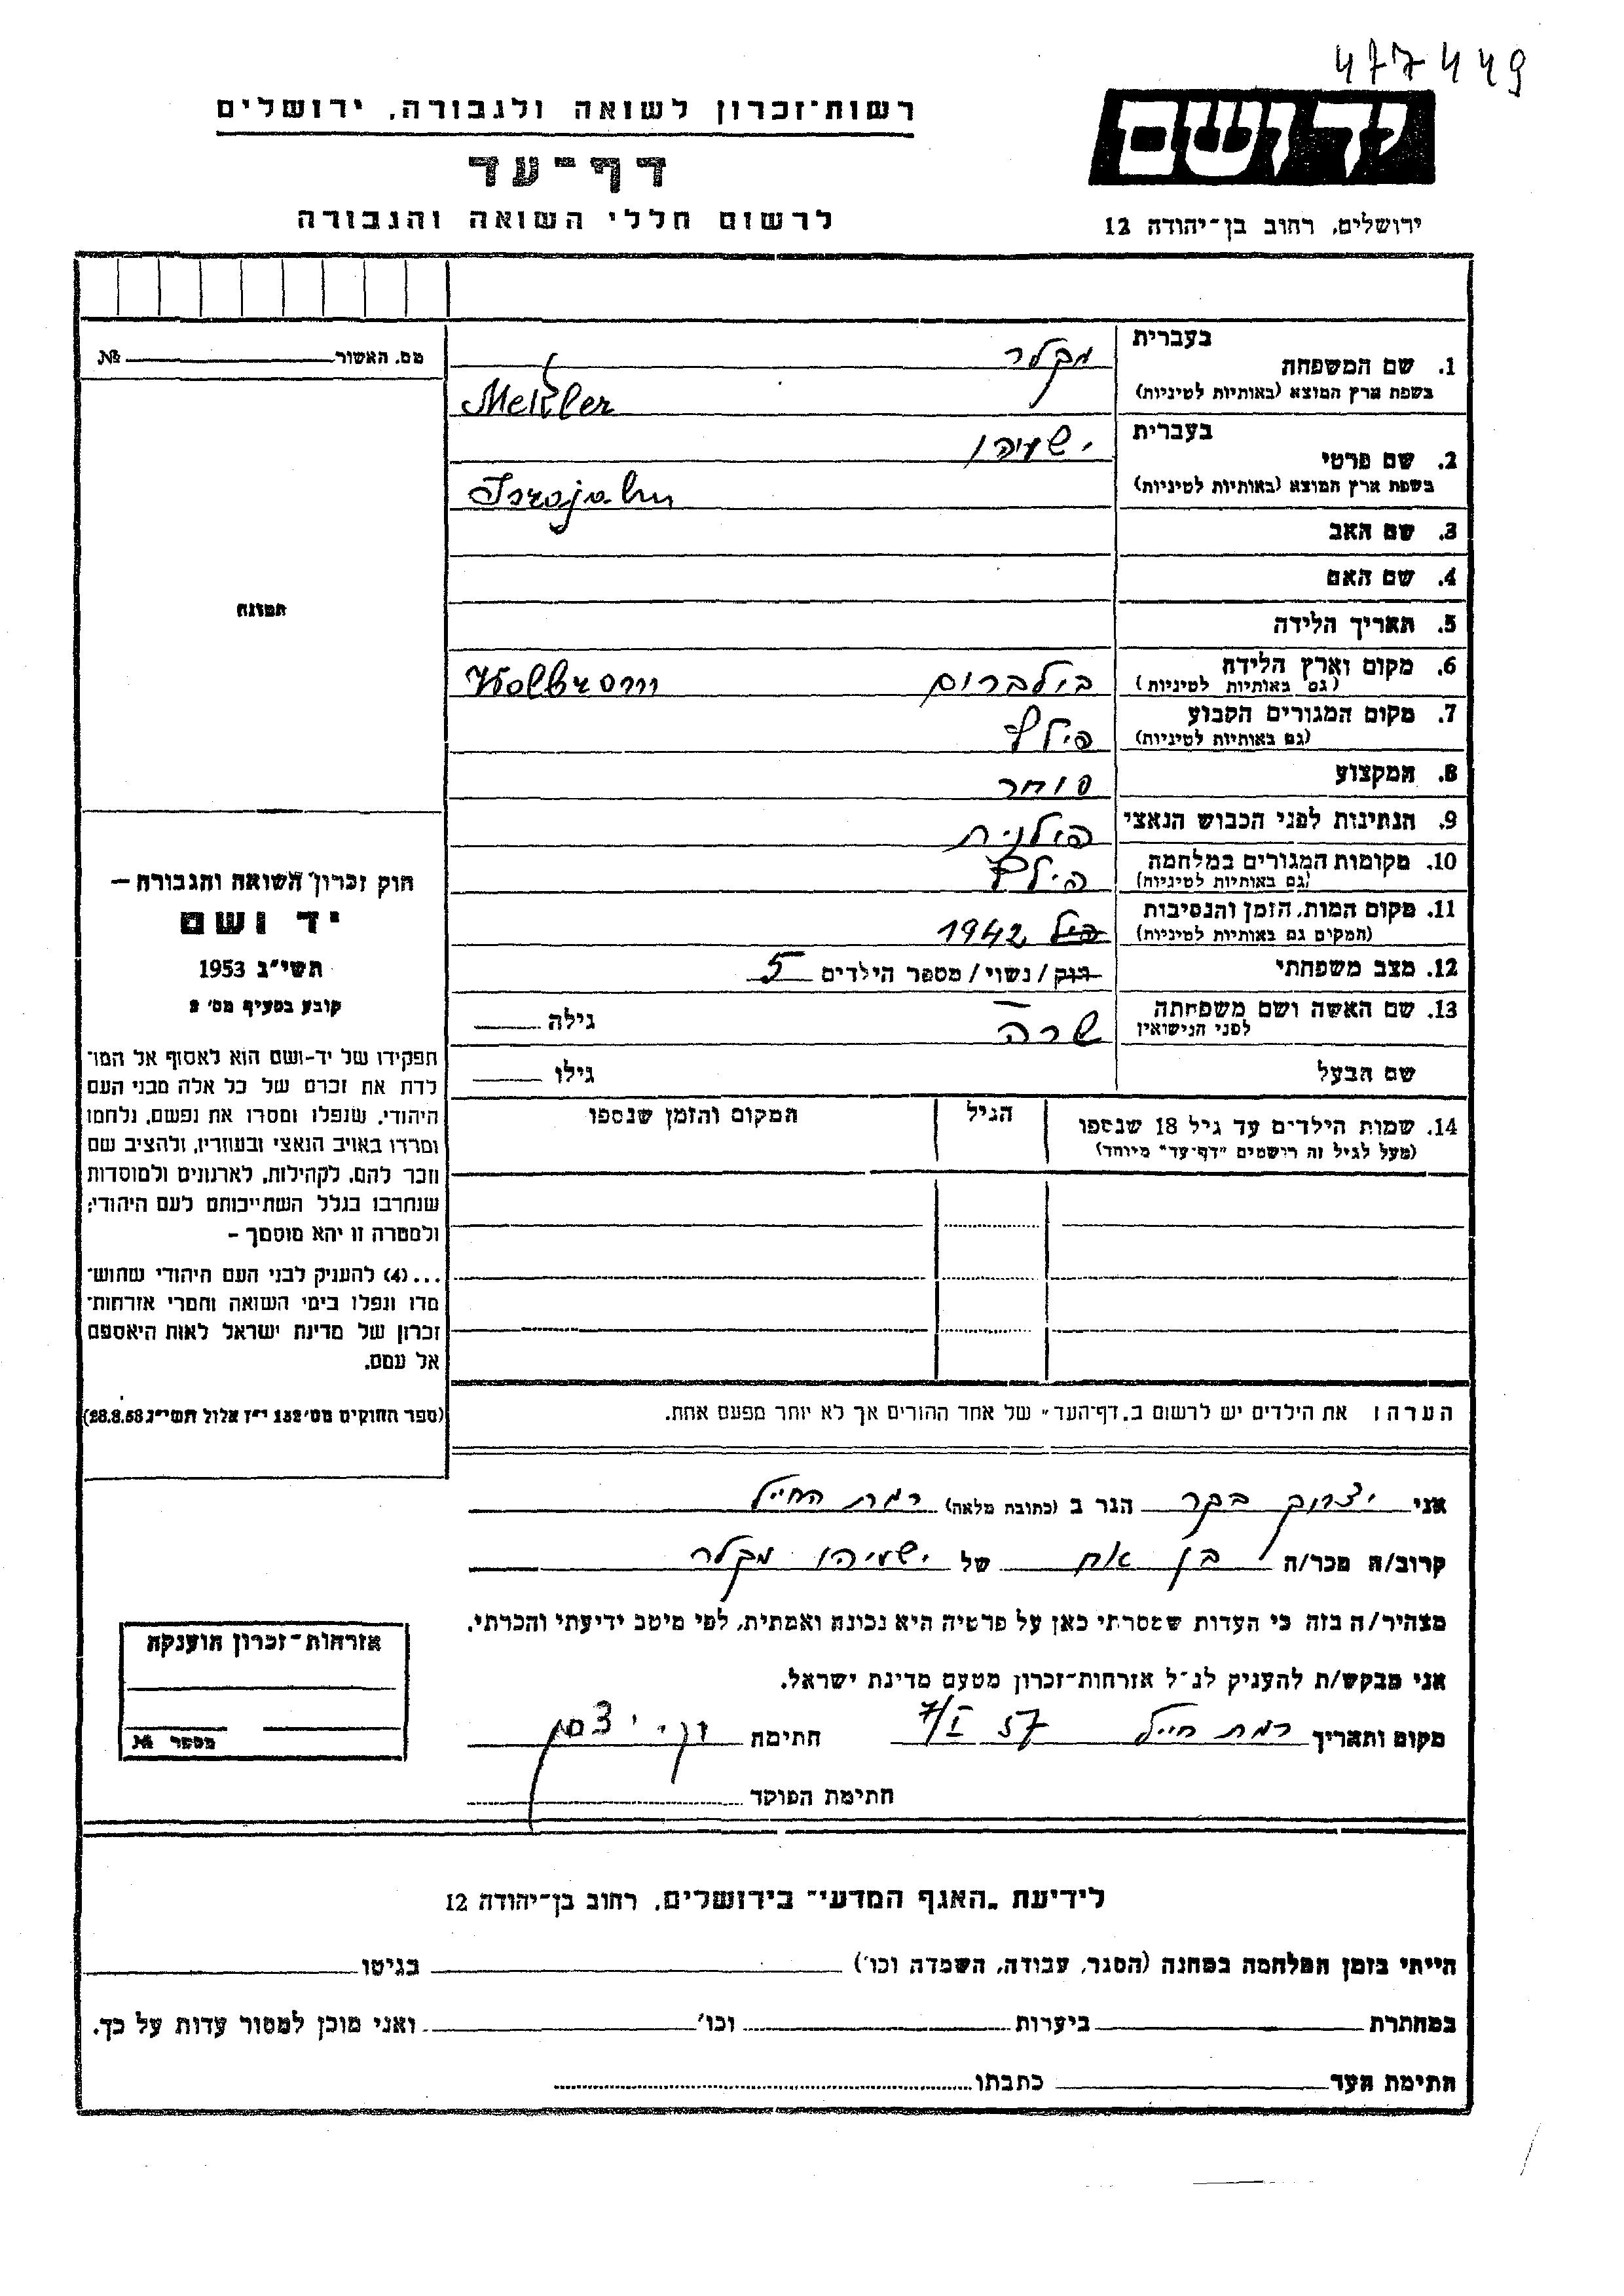 477449
יד ושם
רשות־זכרון לשואה ולגבורה, ירושלים
דף־עד
לרשום חללי השואה והגבורה
ירושלים, רחוב בן־יהודה 12
מס. האשור №
בעברית
1. שם המשפחה מקלר
בשפת ארץ המוצא (באותיות לטיניות) Mekler
בעברית
2. שם פרטי ישעיהו
בשפת ארץ המוצא (באותיות לטיניות)
3. שם האב
4. שם האם
תמונה
5. תאריך הלידה
6. מקום וארץ הלידה (גם באותיות לטיניות) בילברום Wolbrom
7. מקום המגורים הקבוע
(גם באותיות לטיניות)
8. המקצוע סוחר
9. הנתינות לפני הכבוש הנאצי פולנית
10. מקומות המגורים במלחמה
(גם באותיות לטיניות)
11. מקום המות, הזמן והנסיבות 1942
(המקום גם באותיות לטיניות)
12. מצב משפחתי רוק / נשוי / מספר הילדים 5
13. שם האשה ושם משפחתה שרה גילה
לפני הנישואין
שם הבעל גילו
14. שמות הילדים עד גיל 18 שנספו הגיל המקום והזמן שנספו
(מעל לגיל זה רישמים "דף־עד" מיוחד)
חוק זכרון השואה והגבורה —
יד ושם
תשי"ג 1953
קובע בסעיף מס' 2
תפקידו של יד-ושם הוא לאסוף אל המו־
לדת את זכרם של כל אלה מבני העם
היהודי, שנפלו ומסרו את נפשם, נלחמו
ומרדו באויב הנאצי ובעוזריו, ולהציב שם
וזכר להם, לקהילות, לארגונים ולמוסדות
שנחרבו בגלל השתייכותם לעם היהודי;
ולמטרה זו יהא מוסמך –
...(4) להעניק לבני העם היהודי שהוש־
מדו ונפלו בימי השואה והמרי אזרחות־
זכרון של מדינת ישראל לאות היאספם
אל עמם.
(ספר החוקים מס' 132 י"ז אלול תשי"ג 28.8.53)
הערה: את הילדים יש לרשום ב„דף־העד" של אחד ההורים אך לא יותר מפעם אחת.
אני יצחק בקר הגר ב (כתובת מלאה) רמת החייל
קרוב/ה מכר/ה בן אח של ישעיהו מקלר
מצהיר/ה בזה כי העדות שמסרתי כאן על פרטיה היא נכונה ואמתית, לפי מיטב ידיעתי והכרתי.
אני מבקש/ת להעניק לנ"ל אזרחות־זכרון מטעם מדינת ישראל.
מקום ותאריך רמת חייל 7/I 57 חתימה
חתימת הפוקד
אזרחות־זכרון הוענקה
מספר №
לידיעת „האגף המדעי" בירושלים, רחוב בן־יהודה 12
הייתי בזמן המלחמה במחנה (הסגר, עבודה, השמדה וכו') בגיטו
במחתרת ביערות וכו' ואני מוכן למסור עדות על כך.
חתימת העד כתבתו